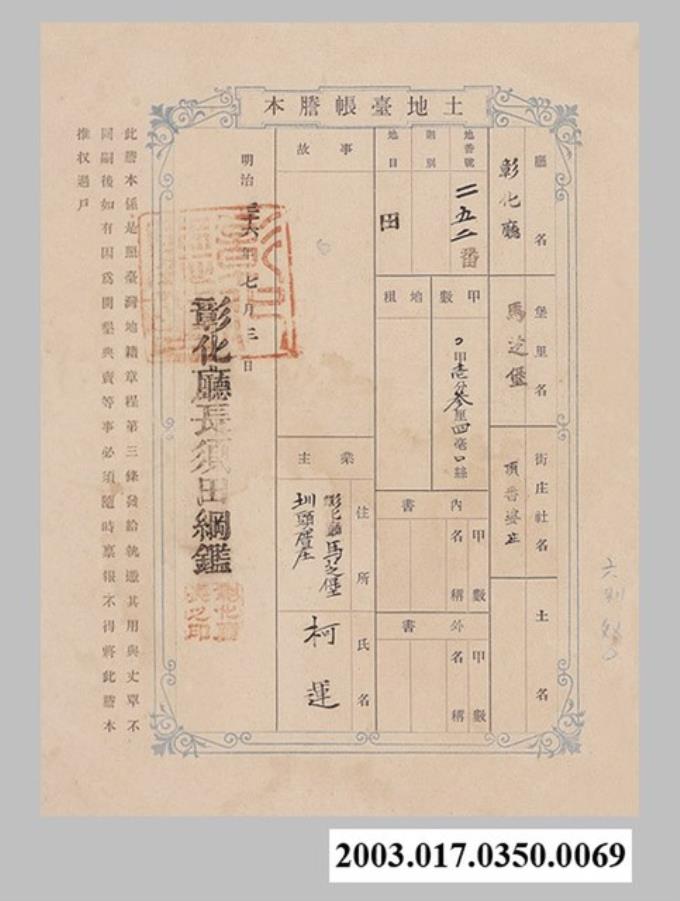 土地臺帳謄本
廳名
彰化廳
堡里名
馬芝堡
街庄社名
頂番婆庄
土名
地番號
二五二番
則別
地目
田
甲數
〇甲壱分參厘四毫〇絲
地租
內書
甲數
名稱
外書
甲數
名稱
事故
業主
住所
彰化廳馬芝堡
圳頭厝庄
氏名
柯運
明治三十六年七月三日
彰化廳長須田綱鑑
彰化廳長之印
此謄本係是照臺灣地籍章程第三條發給執憑其用與丈單不
同嗣後如有因為開墾典賣等事必須隨時稟報不得將此謄本
推收過戶
2003.017.0350.0069